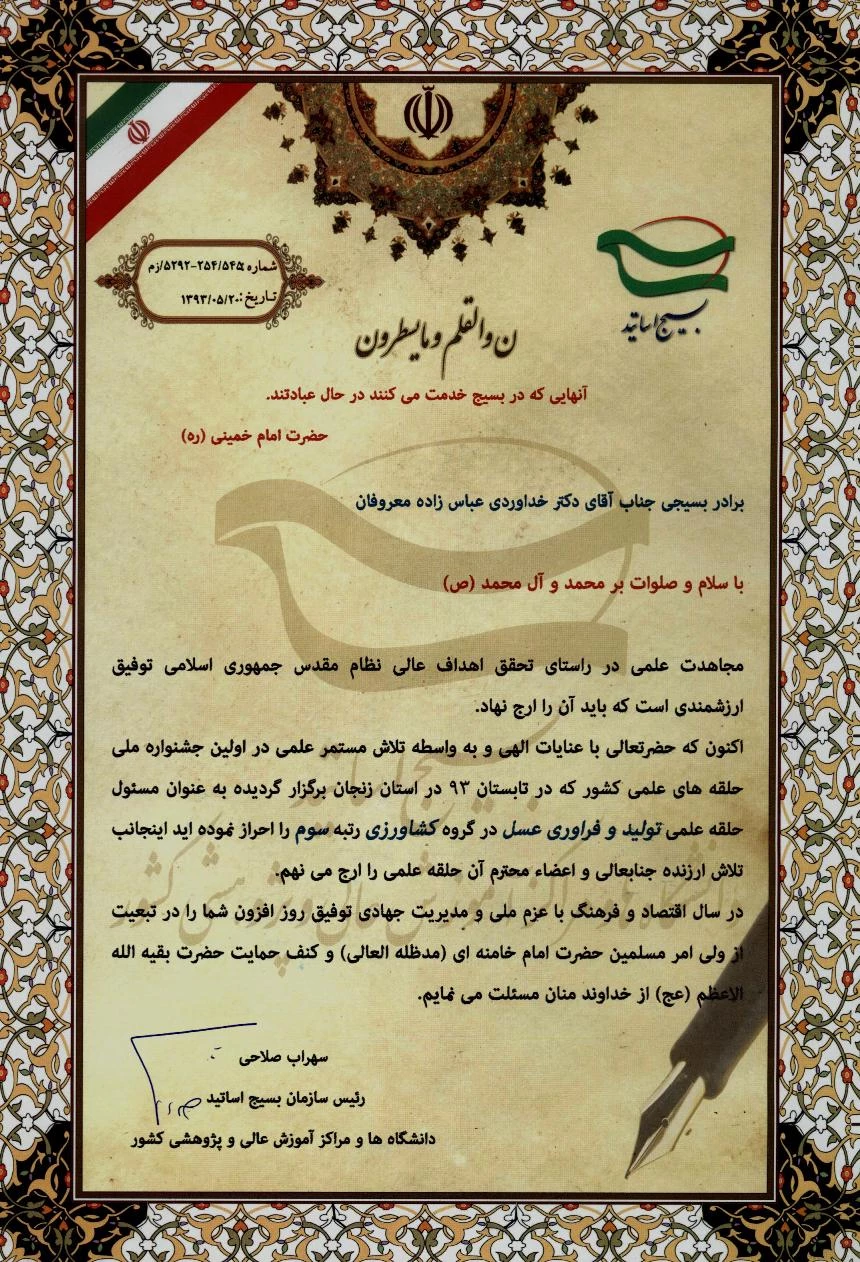 بسیج اساتید
شماره ۵۲۹۲-۲۵۴/۵۴۵/زم
تاریخ: ۱۳۹۳/۰۵/۲۰
ن والقلم و ما یسطرون
آنهایی که در بسیج خدمت می کنند در حال عبادتند.
حضرت امام خمینی (ره)
برادر بسیجی جناب آقای دکتر خداوردی عباس زاده معروفان
با سلام و صلوات بر محمد و آل محمد (ص)
مجاهدت علمی در راستای تحقق اهداف عالی نظام مقدس جمهوری اسلامی توفیق
ارزشمندی است که باید آن را ارج نهاد.
اکنون که حضرتعالی با عنایات الهی و به واسطه تلاش مستمر علمی در اولین جشنواره ملی
حلقه های علمی کشور که در تابستان ۹۳ در استان زنجان برگزار گردیده به عنوان مسئول
حلقه علمی تولید و فراوری عسل در گروه کشاورزی رتبه سوم را احراز نموده اید اینجانب
تلاش ارزنده جنابعالی و اعضاء محترم آن حلقه علمی را ارج می نهم.
در سال اقتصاد و فرهنگ با عزم ملی و مدیریت جهادی توفیق روز افزون شما را در تبعیت
از ولی امر مسلمین حضرت امام خامنه ای (مدظله العالی) و کنف حمایت حضرت بقیه الله
الاعظم (عج) از خداوند منان مسئلت می نمایم.
سهراب صلاحی
رئیس سازمان بسیج اساتید
دانشگاه ها و مراکز آموزش عالی و پژوهشی کشور